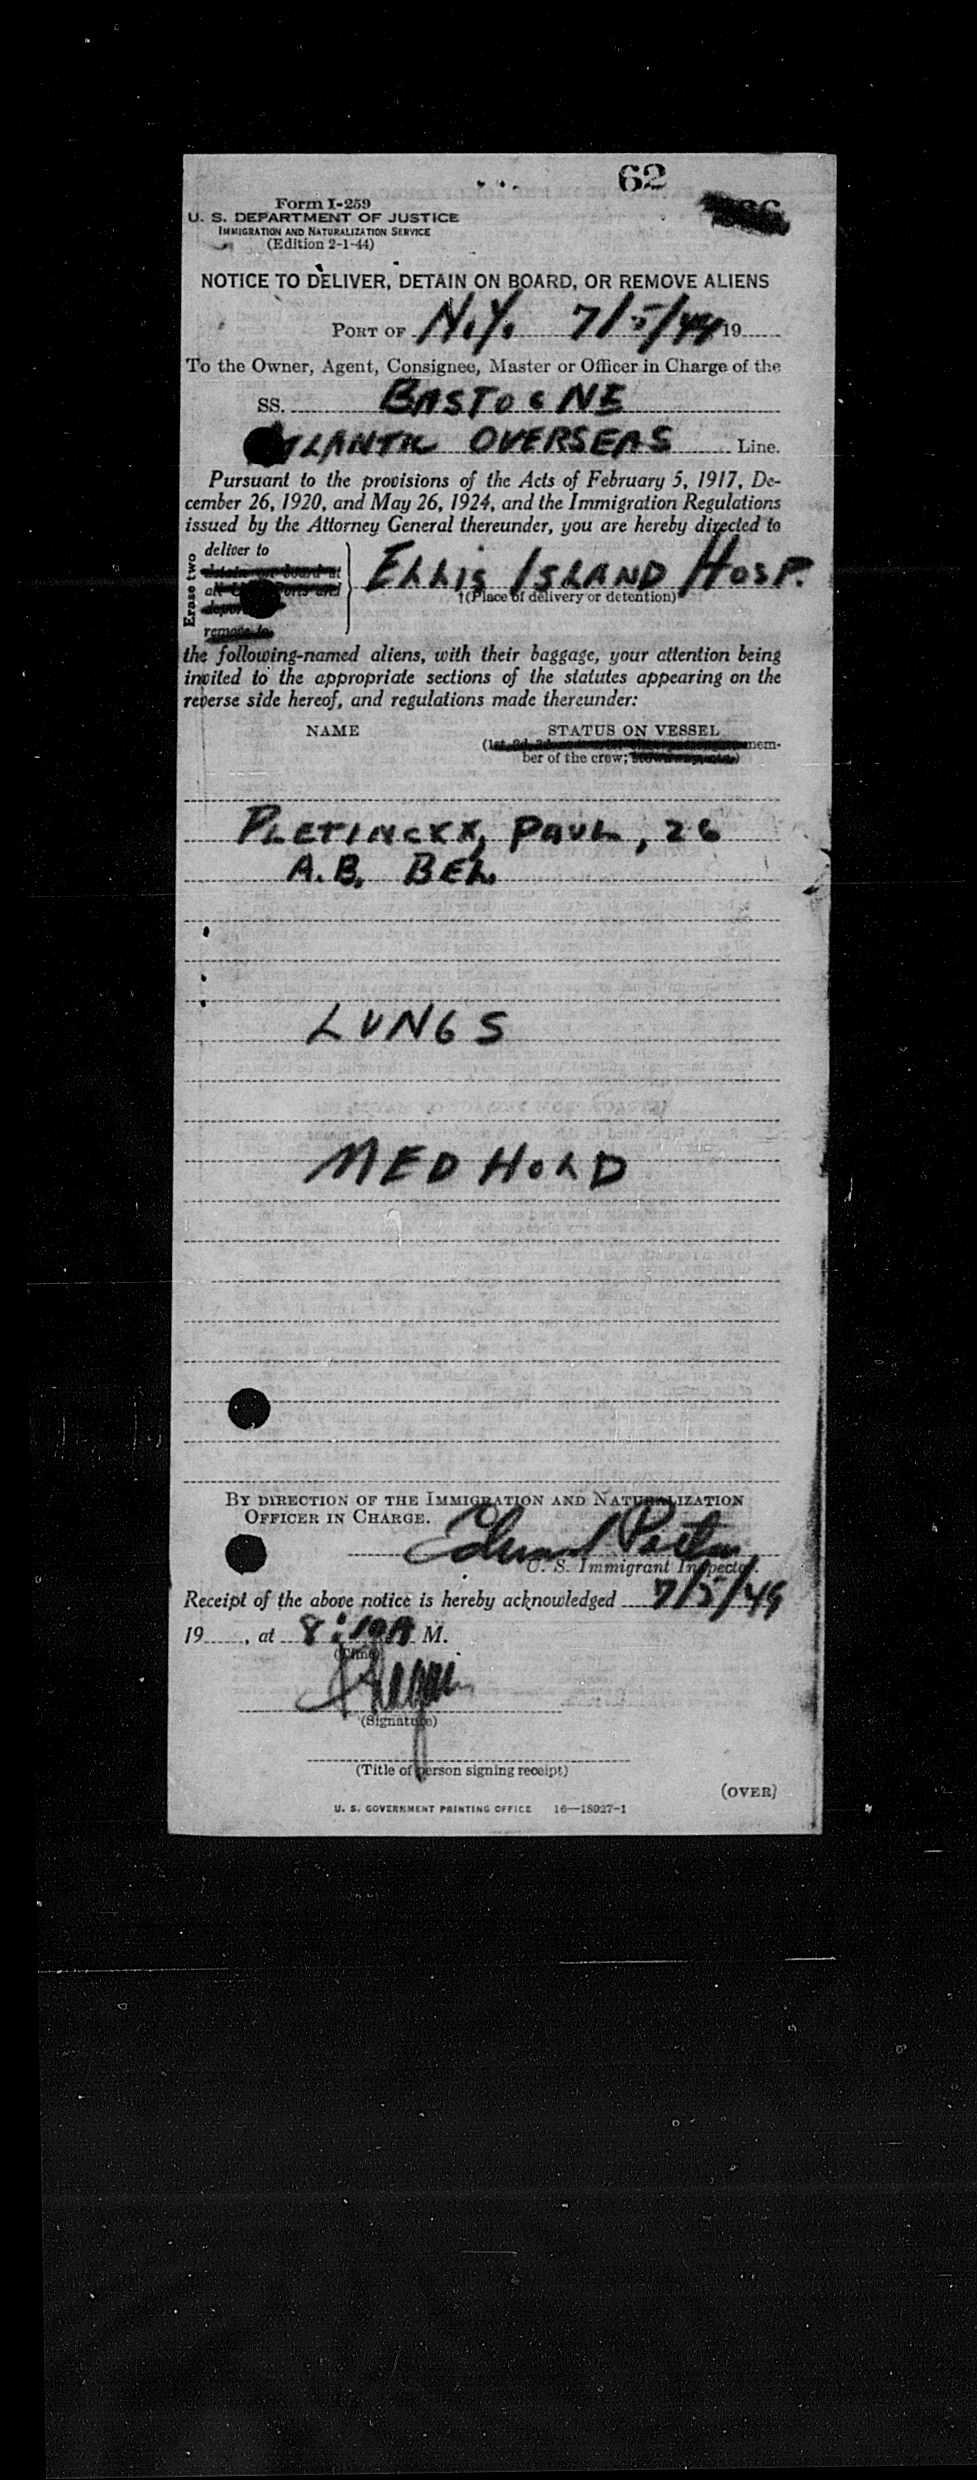 62
Form I-259
U. S. DEPARTMENT OF JUSTICE
IMMIGRATION AND NATURALIZATION SERVICE
(Edition 2-1-44)
NOTICE TO DELIVER, DETAIN ON BOARD, OR REMOVE ALIENS
PORT OF N.Y. 7/5/49 19
To the Owner, Agent, Consignee, Master or Officer in Charge of the
SS. BASTOGNE
ATLANTIC OVERSEAS Line.
Pursuant to the provisions of the Acts of February 5, 1917, De-
cember 26, 1920, and May 26, 1924, and the Immigration Regulations
issued by the Attorney General thereunder, you are hereby directed to
Erase two
deliver to
detain on board at
remove to
ELLIS ISLAND HOSP.
†(Place of delivery or detention)
the following-named aliens, with their baggage, your attention being
invited to the appropriate sections of the statutes appearing on the
reverse side hereof, and regulations made thereunder:
NAME STATUS ON VESSEL
mem-
ber of the crew;
PLETINCKX, PAUL, 26
A.B. BEL.
LUNGS
MED HOLD
BY DIRECTION OF THE IMMIGRATION AND NATURALIZATION
OFFICER IN CHARGE.
Edward
U. S. Immigrant Inspector.
Receipt of the above notice is hereby acknowledged 7/5/49
19 , at 8:10 A M.
(Time)
(Signature)
(Title of person signing receipt)
(OVER)
U. S. GOVERNMENT PRINTING OFFICE 16—18927-1